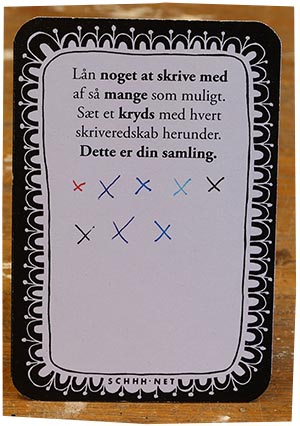 Lån noget at skrive med
af så mange som muligt.
Sæt et kryds med hvert
skriveredskab herunder.
Dette er din samling.
x x x x x
x x x
SCHHH·NET